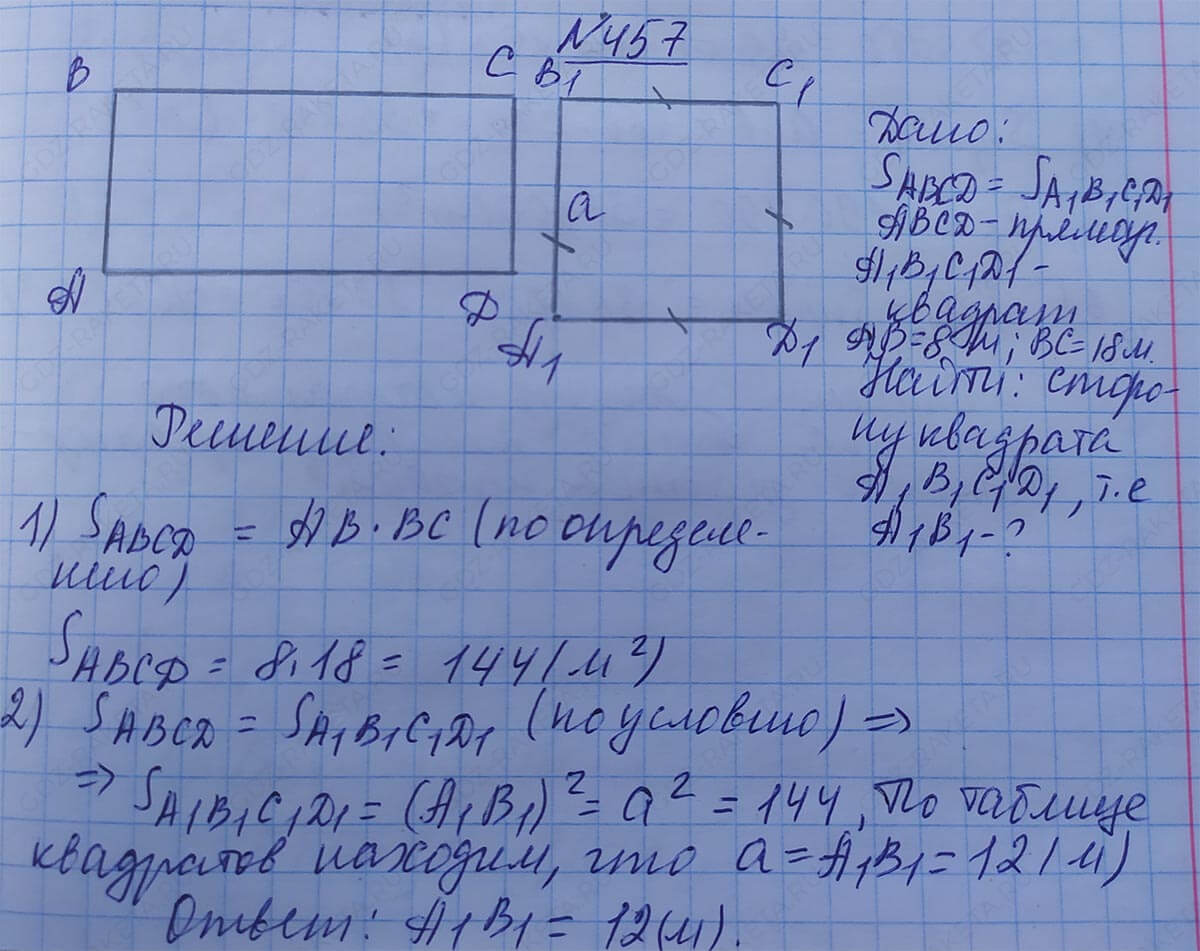 №457
B C B1 C1
a
A D A1 D1
Дано:
SABCD = SA1B1C1D1
ABCD – прямоуг.
A1B1C1D1 –
квадрат
AB=8 м; BC=18м.
Найти: сторо-
ну квадрата
A1B1C1D1, т.е
A1B1 – ?
Решение:
1) SABCD = AB · BC (по определе-
нию)
SABCD = 8·18 = 144 (м²)
2) SABCD = SA1B1C1D1 (по условию) =>
=> SA1B1C1D1 = (A1B1)² = a² = 144, По таблице
квадратов находим, что a = A1B1 = 12 (м)
Ответ: A1B1 = 12(м).